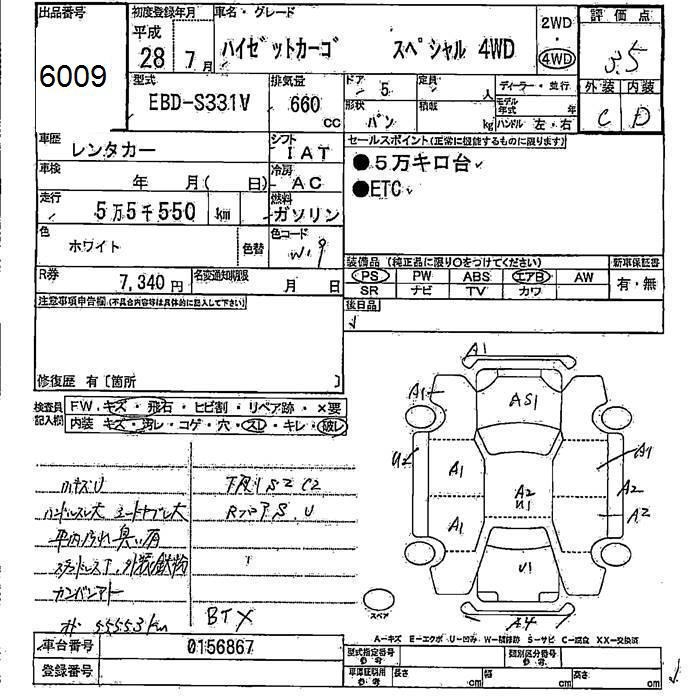 出品番号
6009
初度登録年月
平成
28年7月
車名・グレード
ハイゼットカーゴ スペシャル 4WD
2WD
・
4WD
評価点
3.5
外装 内装
C D
型式
EBD-S331V
排気量
660
cc
ドア 5
形状 バン
定員 人
積載 kg
ディーラー・並行
モデル年式 年
ハンドル 左・右
車歴
レンタカー
シフト
IAT
車検
年 月( 日)
冷房
AC
走行
5万5千550 km
燃料
ガソリン
色
ホワイト
色替
色コード
W19
R券
7,340円
名変通知期限
月 日
セールスポイント(正常に機能するものに限ります)
●5万キロ台
●ETC
装備品(純正品に限り○をつけてください)
PS PW ABS エアB AW
SR ナビ TV カワ
新車保証書
有・無
後日品
注意事項申告欄(不具合内容等は具体的に記入して下さい)
修復歴 有〔箇所 〕
検査員記入欄
FW.キズ・飛石・ヒビ割・リペア跡・×要
内装 キズ・汚レ・コゲ・穴・スレ・キレ・破レ
小キズU
下廻りS2 C2
ハンドルスレ大
平内汚れ臭い有
カンバンアト
55553km
BTX
A1
A1
AS1
U2
A1
A1
A2
U1
A1
A2
A2
U1
A4
スペア
A-キズ E-エクボ U-凹み W-補修跡 S-サビ C-腐食 XX-交換済
車台番号
0156867
登録番号
型式指定番号
参考
類別区分番号
参考
車庫証明用
参考
長さ cm
幅 cm
高さ cm